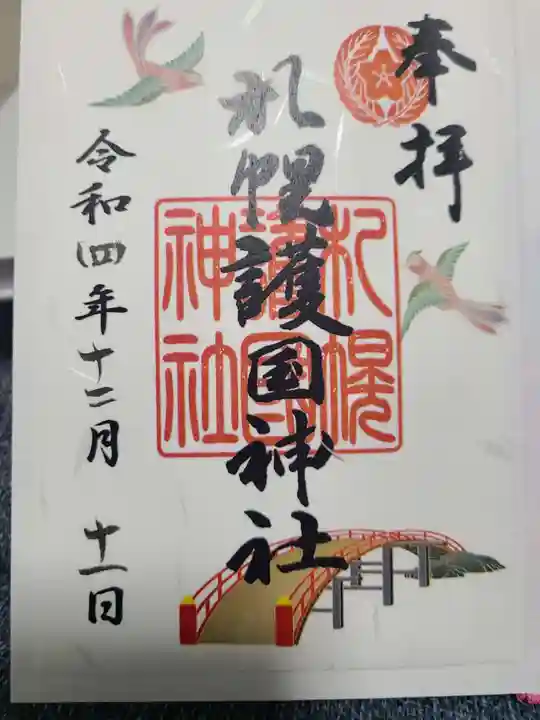 奉拝
札幌護国神社
札幌
護國
神社
令和四年十二月 十一日